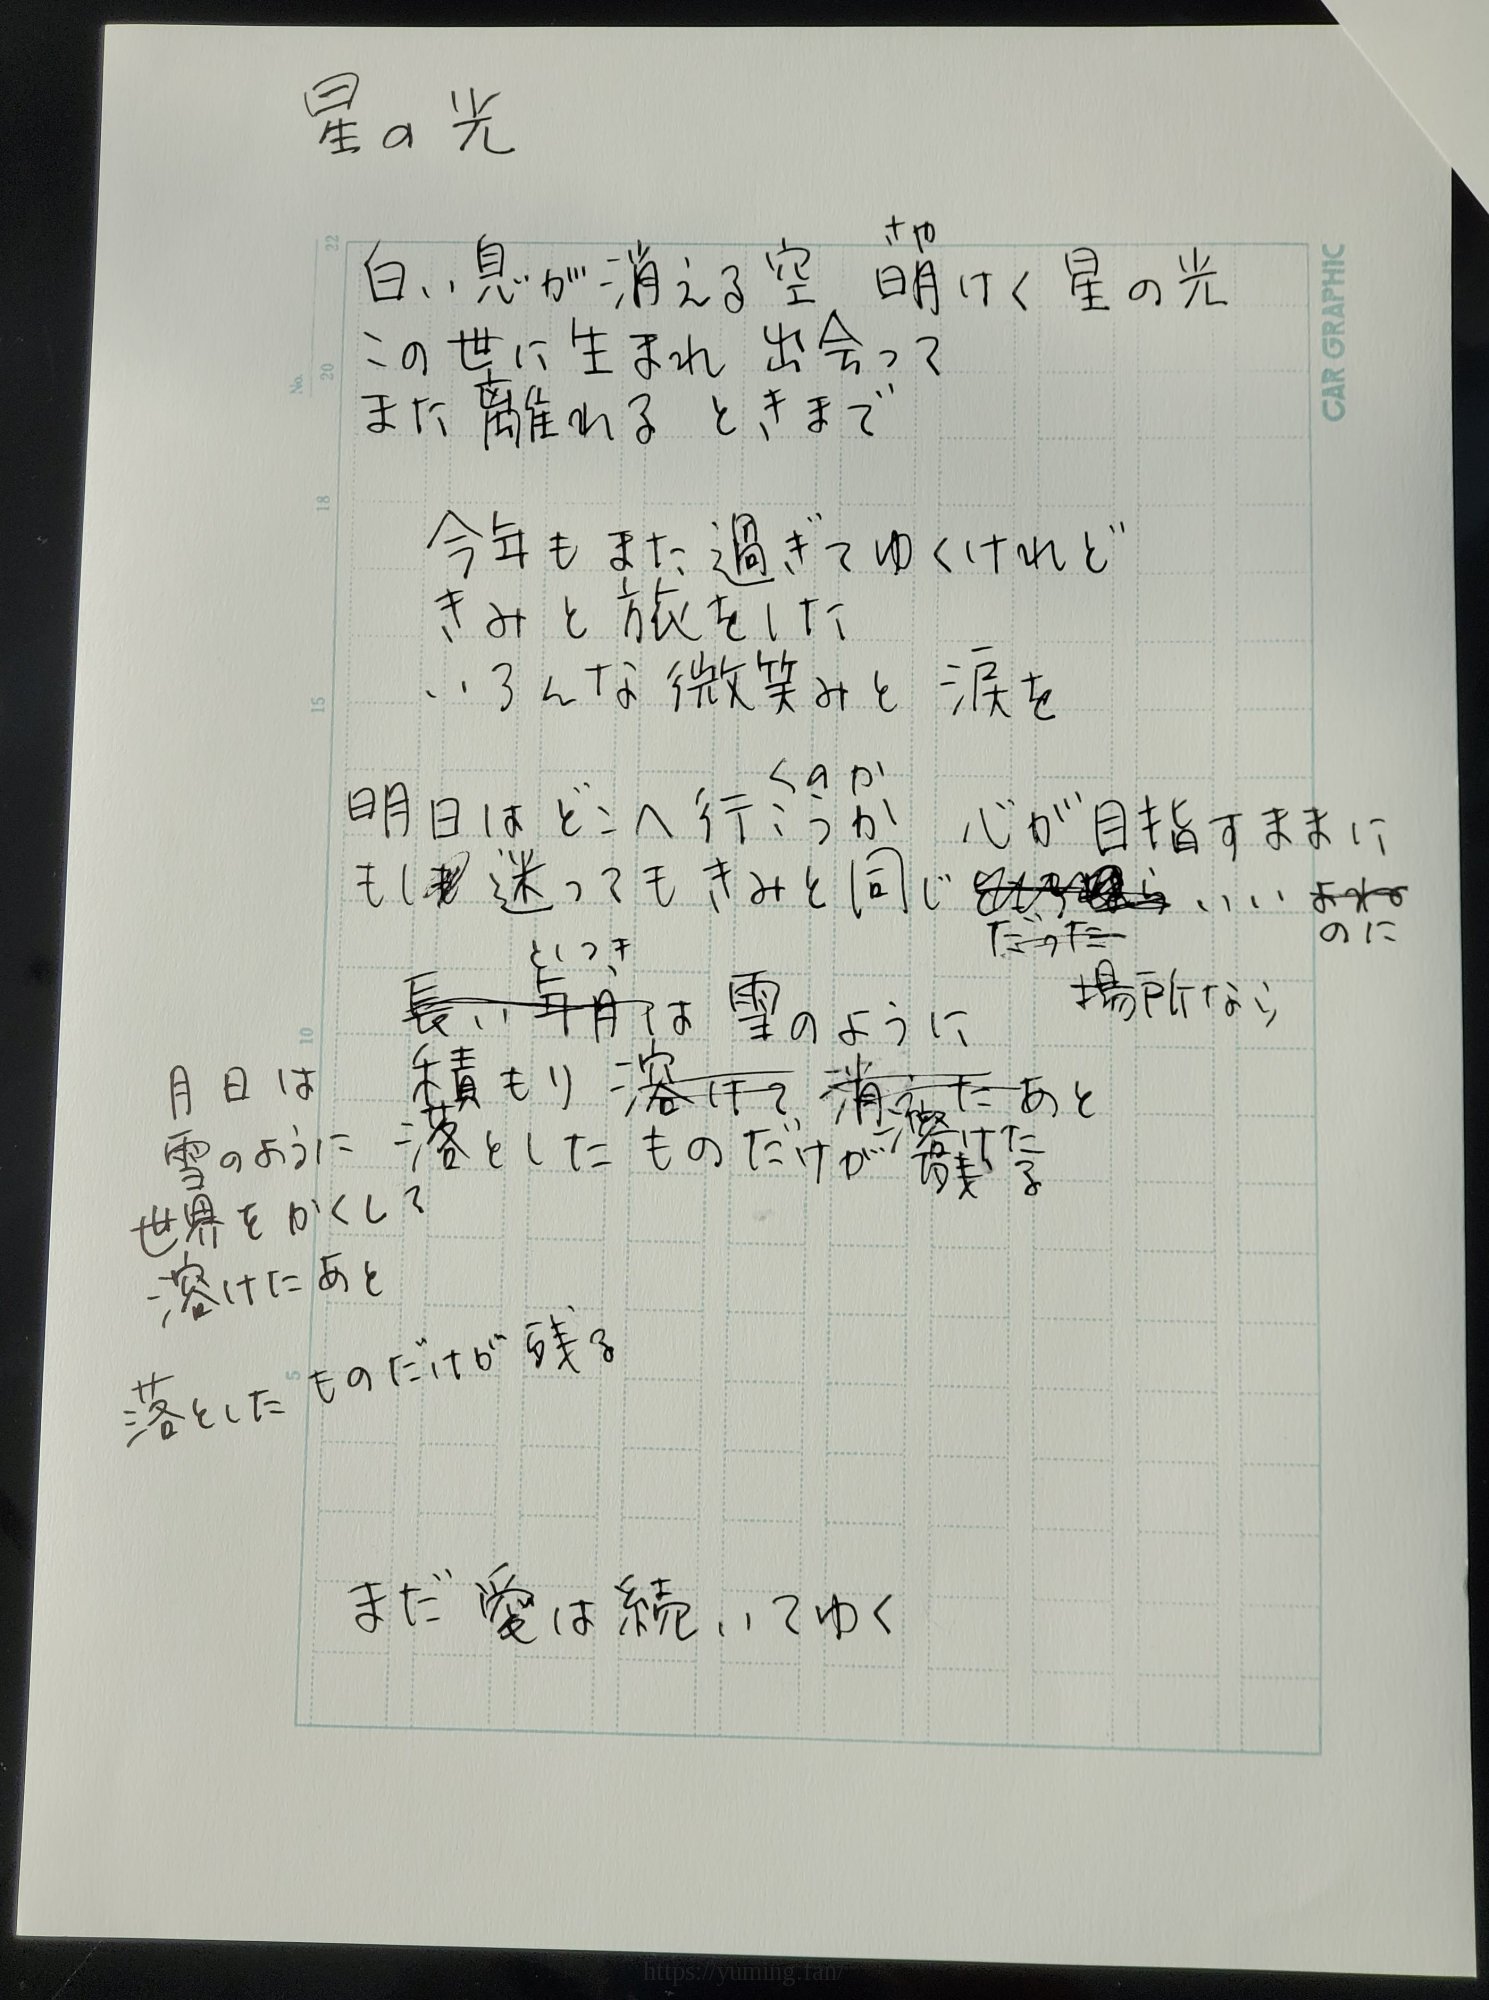 星の光
さや
白い息が消える空 萌けく星の光
この世に生まれ 出会って
また離れる ときまで
今年もまた過ぎてゆくけれど
きみと旅をした
いろんな微笑みと 涙を
くのか
明日はどこへ行こうか 心が目指すままに
もし迷っても きみと同じ いい よね
だった のに
場所なら
としつき
長い年月は 雪のように
積もり 溶けて 消えたあと
溶けた
落としたものだけが 残る
月日は
雪のように
世界をかくして
溶けたあと
落としたものだけが残る
まだ愛は続いてゆく
CAR GRAPHIC
No.
22
20
18
15
10
5
https://yuming.fan/